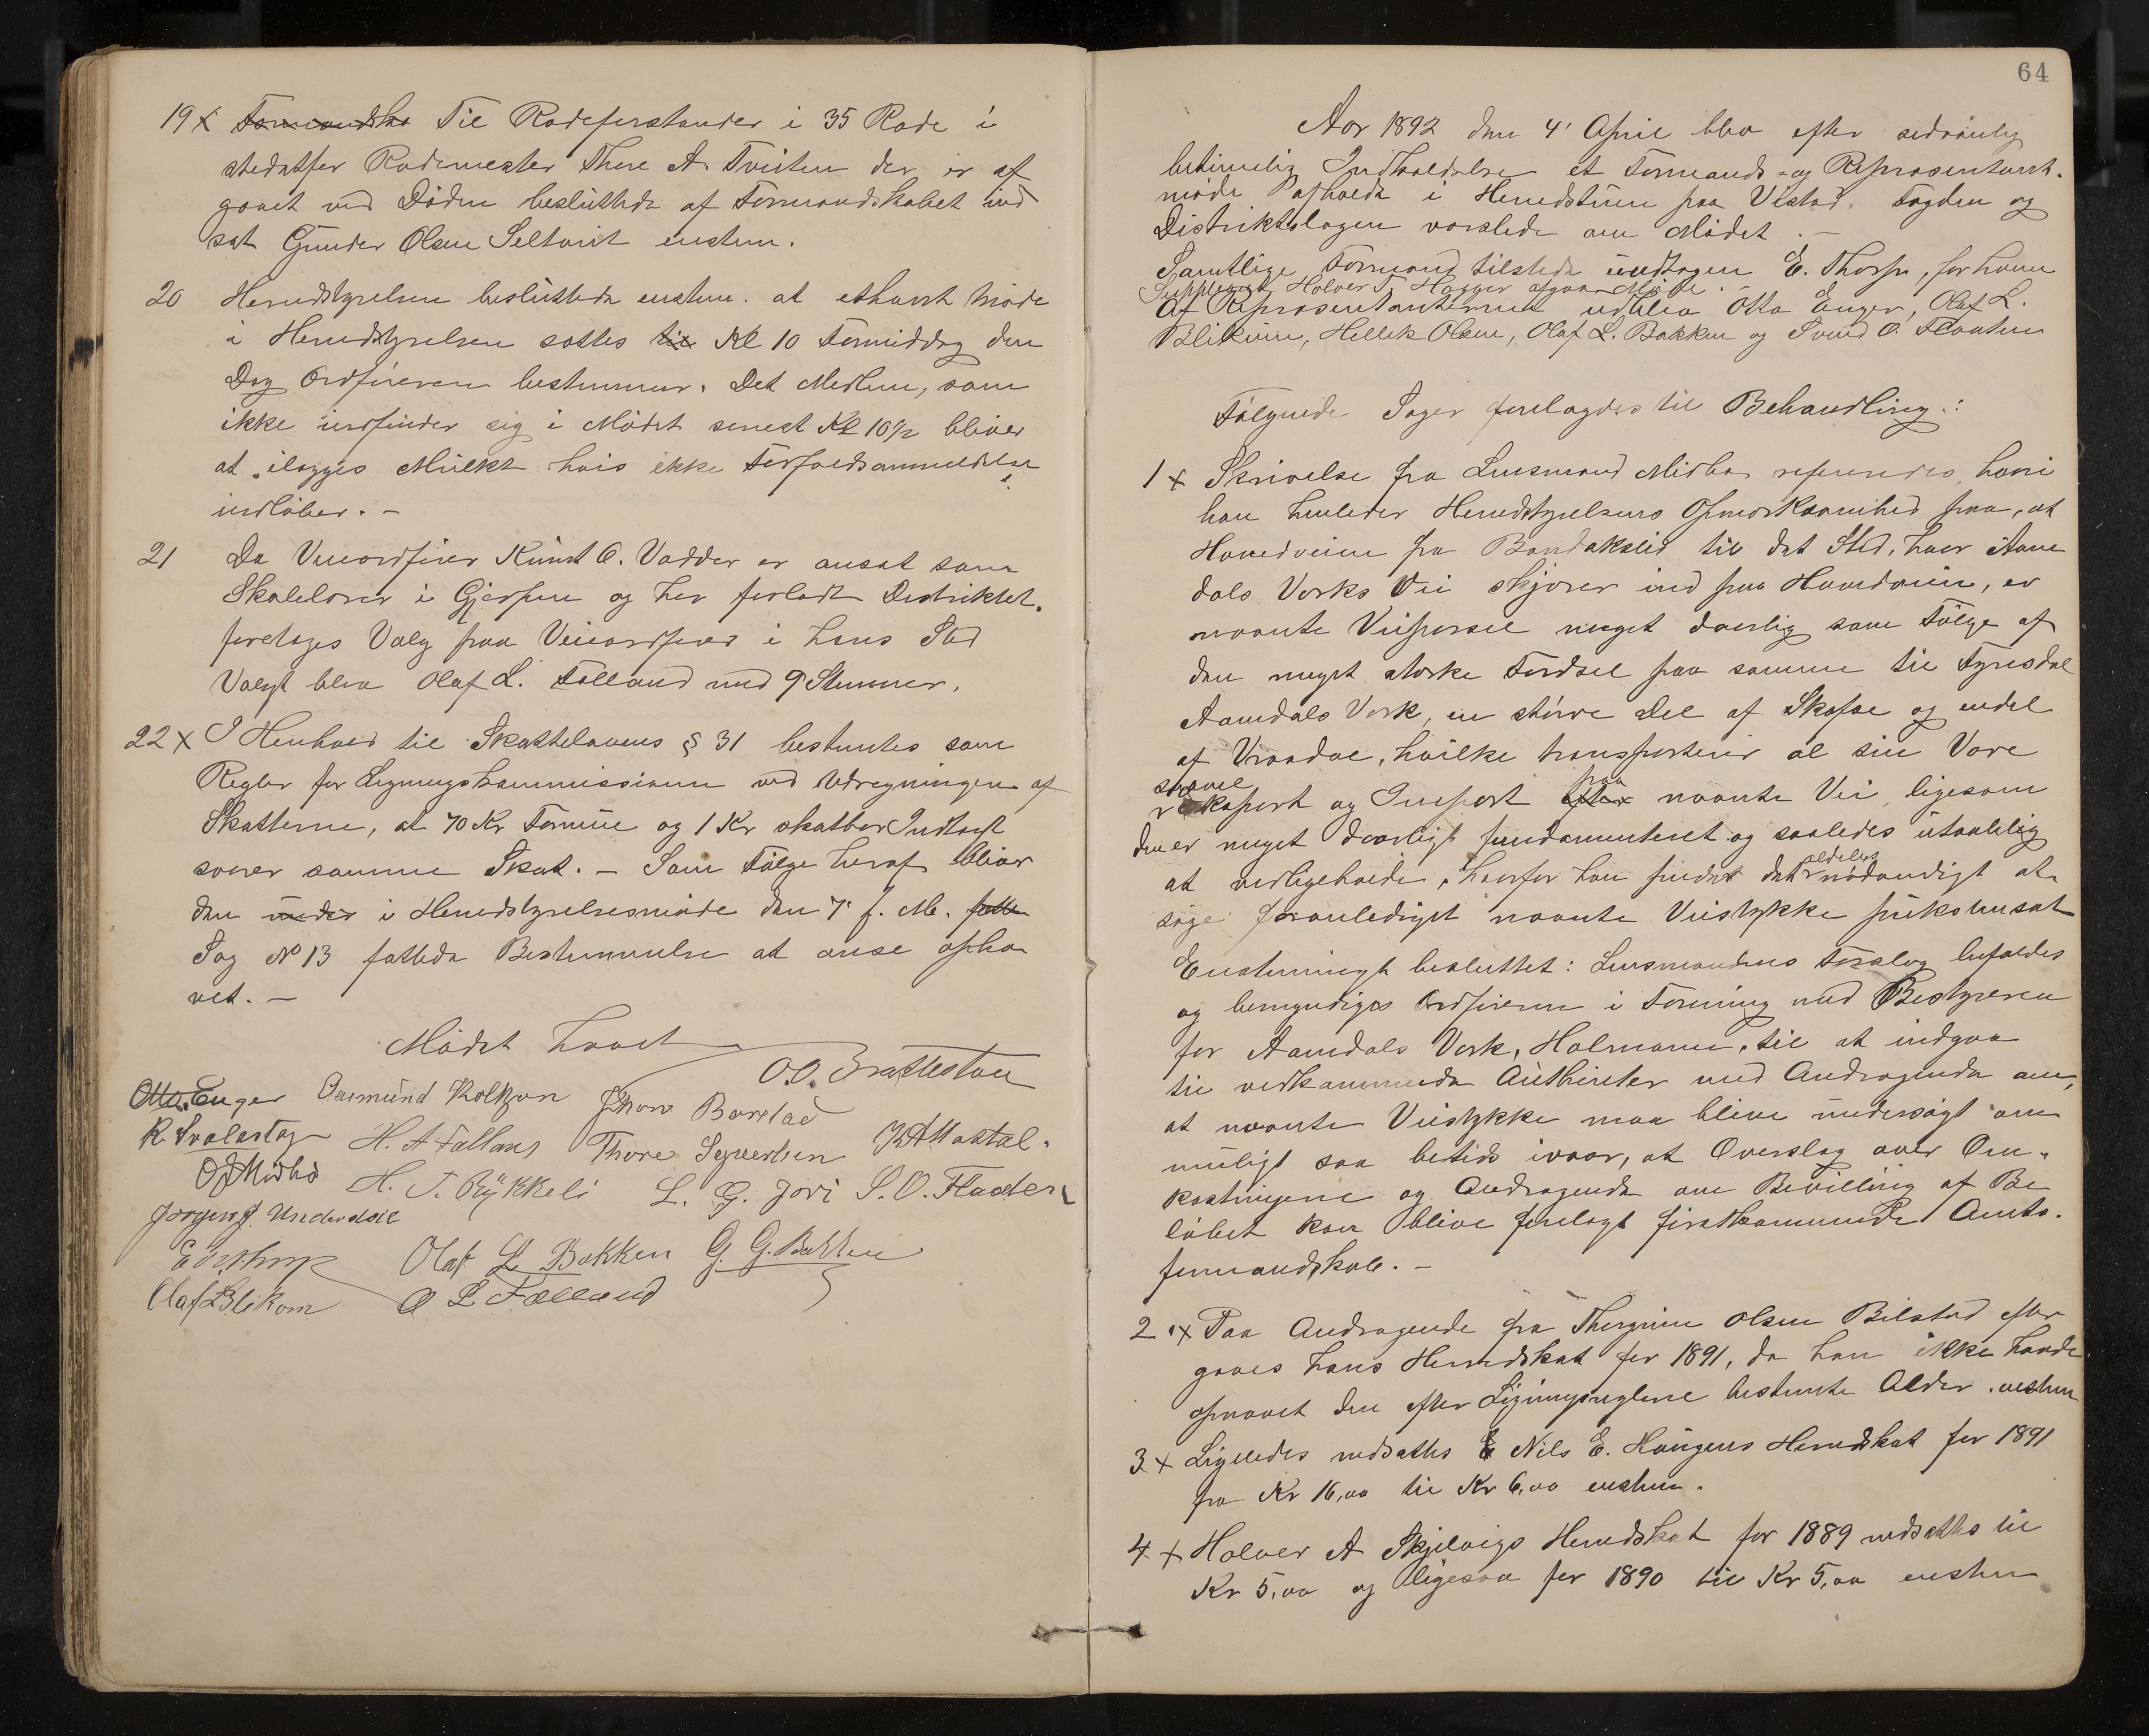 19 x Formandska Til Rodeforstander i 35 Rode i
stedetfor Rodemester Thore A. Tveiten der er af
gaaet ved Døden besluttede af Formandskabet ind
sat Gunder Olsen Seltveit enstem.
20 Heredstyrelsen besluttede enstem. at ethvert Møde
i Heredstyrelsen sættes til Kl 10 Formiddag den
Dag Ordføreren bestemmer. Det Medlem, som
ikke indfinder sig i Mødet senest Kl 10 1/2 bliver
at ilægges Mulkt hvis ikke Forfaldsanmeldelse
indløber. –
21 Da Viceordfører Knut O. Vadder er ansat som
Skolelærer i Gjerpen og har forladt Distriktet,
foretages Valg paa Viceordfører i hans Sted
Valgt blev Olaf L. Fælland med 9 Stemmer.
22 x I Henhold til Skattelovens § 31 bestemtes som
Regler for Ligningskommissionen ved Udregningen af
Skatterne, at 70 Kr Formue og 1 Kr skatbar Indtægt
svarer samme Skat. – Som Følge heraf bliver
den under i Heredstyrelsesmøde den 7' f. M. fatte
Sag No 13 fattede Bestemmelse at anse ophæ
vet. –
Mødet hævet
O.O. Brattestaa
Otto Enger Aasmund Kolkjon Thore Barstad
K. Svalastog H. A Falland Thore Syvertsen K A Mastal.
O J Midbö H. T. Rÿkkeli L. G. Jori S. O. Flaaten
Jörgen J. Underdal
E. Thorp Olaf L Bakken G. G. Bakken
Olaf L Blikom O L Fælland
64
Aar 1892 den 4' April blev efter sedvanlig
betimelig Indkaldelse et Formands- og Repræsentant-
møde afholdt i Heredstuen paa Vistad. Fogden og
Distriktslægen varslede om Mødet. –
Samtlige Formænd tilstede undtagen E. Thorp, for ham
Suppleant Holver T. Hægger afgaar Møde. –
Af Repræsentanterne udblev Otto Enger, Olaf L.
Blikom, Hellek Olsen, Olaf L. Bakken og Svend O. Flaaten
Følgende Sager forelagdes til Behandling:
1 x Skrivelse fra Lensmand Midbø refereredes, hvori
han henleder Heredstyrelsens Opmærksomhed paa, at
Hovedveien fra Bandakslid til det Sted, hvor Aam
dals Værks Vei skjærer ind paa Hovedveien, er
nævnte Veiparsel meget daarlig som Følge af
den meget stærke Færdsel paa samme til Fyresdal
Aamdals Værk, en større Del af Skafse og endel
af Vraadal, hvilke transporterer al sin Vare
saavel
Eksport og Import efter paa nævnte Vei, ligesom
den er meget daarligt fundamenteret og saaledes utaalelig
at vedligeholde, hvorfor han finder det aldeles nødvendigt at
søge foranlediget nævnte Veistykke pukstensat
Enstemmigt besluttet: Lensmandens Forslag bifaldes
og bemyndiges Ordføreren i Forening med Bestyreren
for Aamdals Værk, Holmann, til at indgaa
til vedkommende Autoriteter med Andragende om,
at nævnte Veistykke maa blive undersøgt om
muligt saa betids ivaar, at Overslag over Om-
kostningerne og Andragende om Bevilling af Be
løbet kan blive forelagt førstkommende Amts-
formandskab. –
2 x Paa Andragende fra Thorgrim Olsen Bilstad efter
gaves hans Heredskat for 1891, da han ikke havde
opnaaet den efter Ligningsreglerne bestemte Alder. enstem
3 x Ligeledes nedsattes E Nils E. Haugens Heredskat for 1891
fra Kr 16,00 til Kr 6,00 enstem.
4 x Holver A Skjelvigs Heredskat for 1889 nedsattes til
Kr 5,00 og ligesaa for 1890 til Kr 5,00 enstem